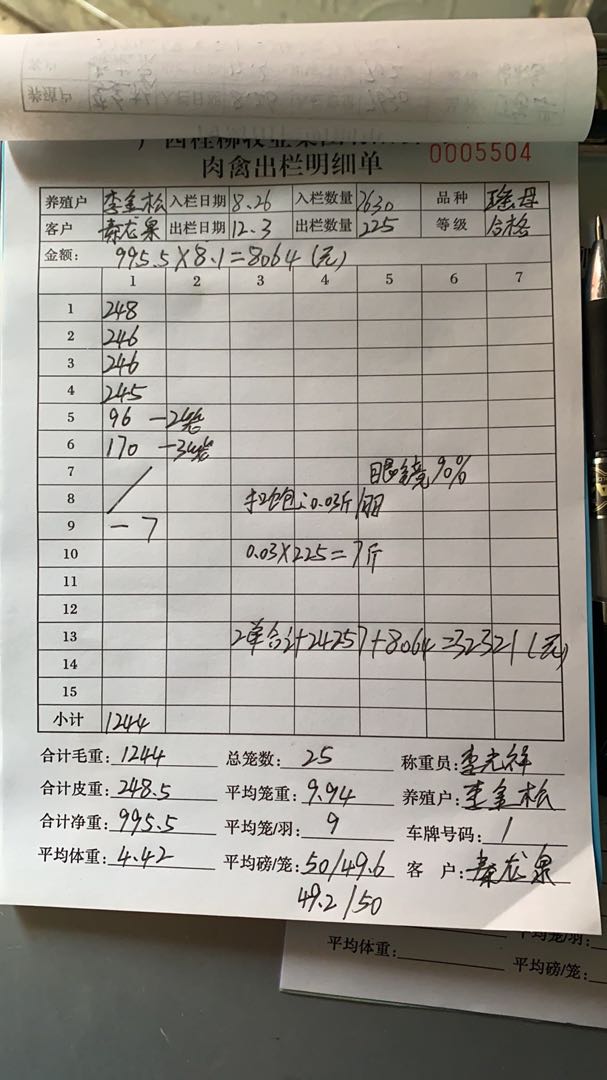 肉禽出栏明细单 0005504
养殖户 李金松 入栏日期 8.26 入栏数量 2630 品种
客户 秦龙泉 出栏日期 12.3 出栏数量 225 等级 合格
金额: 995.5×8.1=8064(元)
1 2 3 4 5 6 7
1 248
2 246
3 246
4 245
5 96 -2笼
6 170 -3笼
7 眼镜90%
8 扣饱:0.03斤/羽
9 -7
10 0.03×225=7斤
11
12
13 2单合计24257+8064=32321(元)
14
15
小计 1244
合计毛重: 1244 总笼数: 25 称重员: 李光祥
合计皮重: 248.5 平均笼重: 9.94 养殖户: 李金松
合计净重: 995.5 平均笼/羽: 9 车牌号码: 1
平均体重: 4.42 平均磅/笼: 50/49.6 客 户: 秦龙泉
49.2/50
平均笼/羽:
平均体重: 平均磅/笼: